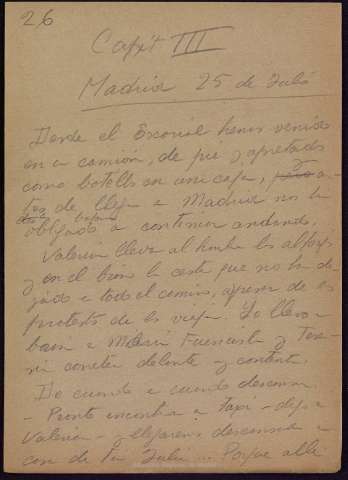 26
Capt III
Madrid 25 de Julio
Desde el Escorial hemos venido
en un camión, de pie y apretados
como botellas en una caja, pero an-
tes de llegar a Madrid nos han
obligado a continuar andando.
Valeria lleva al hombro las alforjas
y en el brazo la cesta que no ha de-
jado en todo el camino, a pesar de las
protestas de la vieja. Yo llevo
a Maria Fuencisla y
delante y contenta.
De cuando en cuando descansan.
- Pronto encontrar a - dijo
Valeria - y llegaremos descansados a
casa de tía Julia ... Porque allí